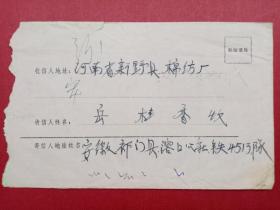 贴邮票处
收信人地址: 河南省新野县棉纺厂
收信人姓名 岳桂香收
寄信人地址姓名: 安徽祁门县溶口公社铁4513队